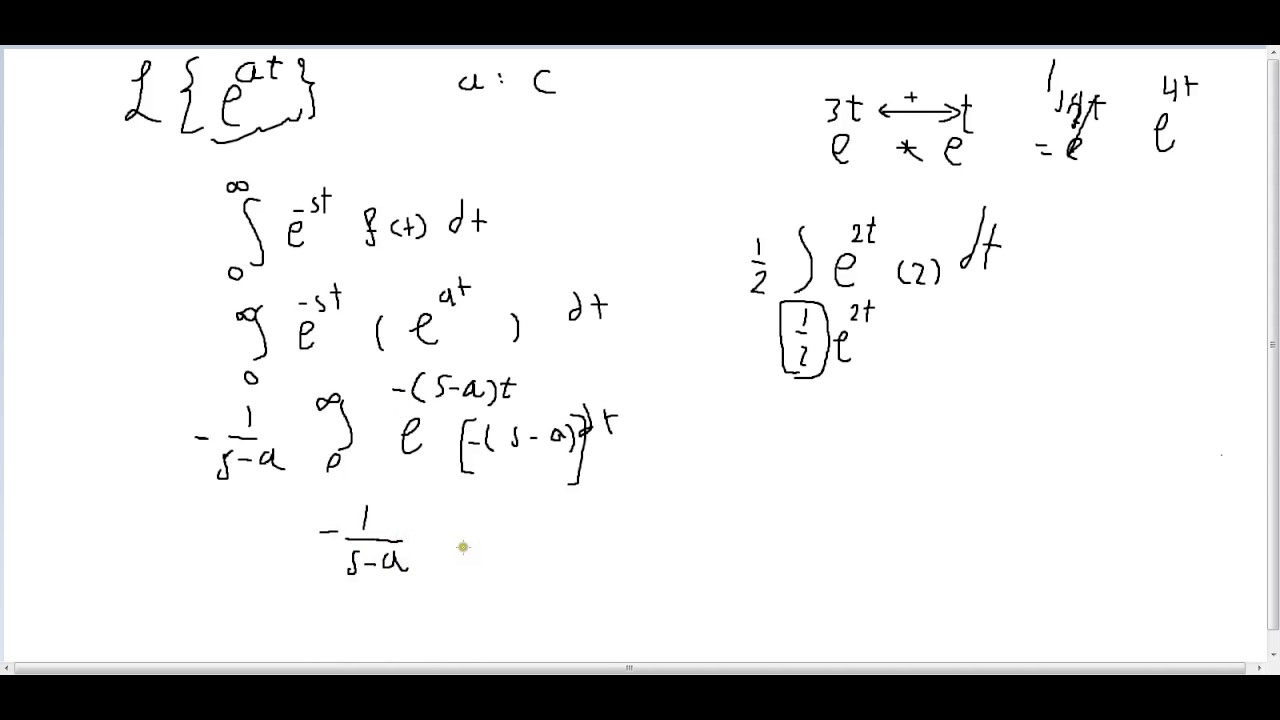 ℒ{e^{at}} a : C
∫_0^∞ e^{-st} f(t) dt
∫_0^∞ e^{-st} (e^{at}) dt
-\frac{1}{s-a} ∫_0^∞ e^{-(s-a)t} [-(s-a)] dt
-\frac{1}{s-a}
e^{3t} * e^{t} = e e^{4t}
+
\frac{1}{2} ∫ e^{2t} (2) dt
\frac{1}{2} e^{2t}